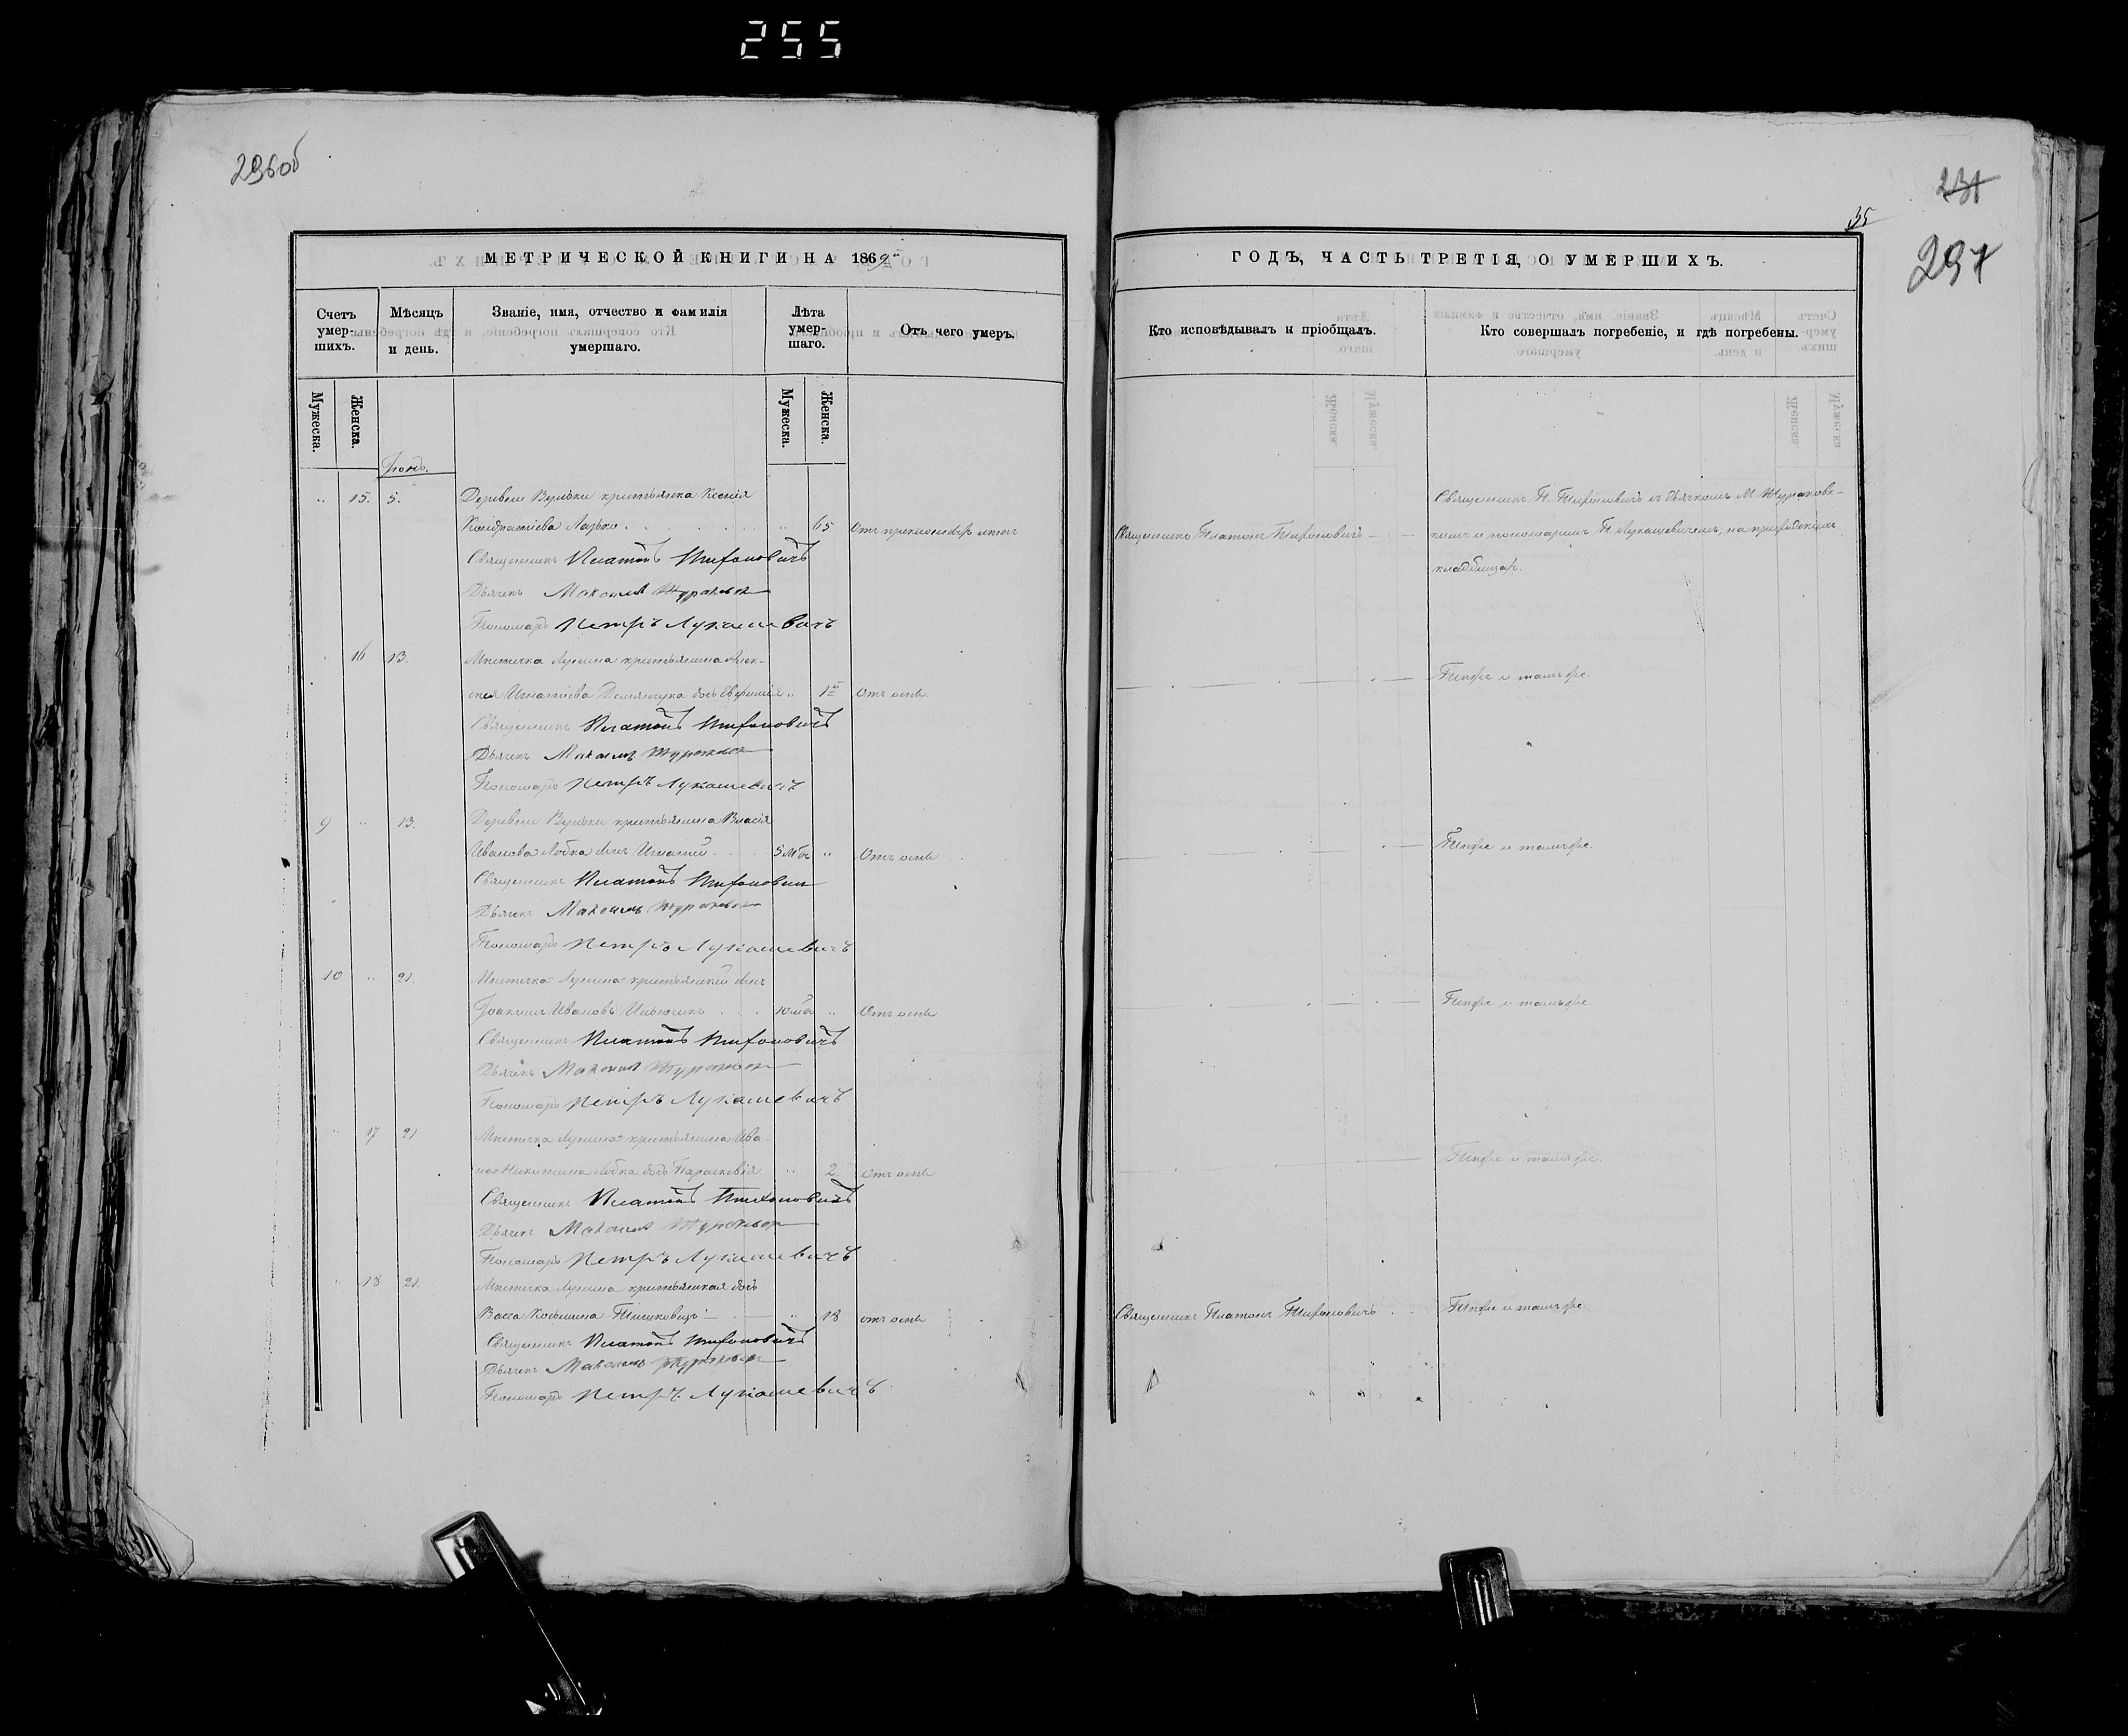 255
296об
231
35
297
МЕТРИЧЕСКОЙ КНИГИ НА 1869й
ГОДЪ, ЧАСТЬ ТРЕТІЯ, О УМЕРШИХЪ.
Счетъ умер-шихъ.
Мѣсяцъ и день.
Званіе, имя, отчество и фамилія умершаго.
Лѣта умер-шаго.
Отъ чего умеръ.
Кто исповѣдывалъ и пріобщалъ.
Кто совершалъ погребеніе, и гдѣ погребены.
Мужеска.
Женска.
Мужеска.
Женска.
" 15. 5. Деревни Вульки крестьянка Ксенія
Священникъ П. Тифоновичъ съ дьячкомъ М.
Кондратіева Лазько " 65 Отъ преклонныхъ лѣтъ
Священникъ Платонъ Тифоновичъ
и пономаремъ П. Лукашевичемъ, на приходскомъ
Священникъ Платонъ Тифоновичъ
кладбищѣ.
Дьячекъ Максимъ
Пономарь Петръ Лукашевичъ
16 13. Мѣстечка Лунина крестьянина Алек-
Тѣмъ же и тамъ же.
сѣя Игнатіева дочь Евфимія " 1 Отъ оспы
Священникъ Платонъ Тифоновичъ
Дьячекъ Максимъ
Пономарь Петръ Лукашевичъ
9 " 13. Деревни Вульки крестьянина Власія
Тѣмъ же и тамъ же.
Иванова Лобка сынъ Игнатій 5 мѣс " Отъ оспы
Священникъ Платонъ Тифоновичъ
Дьячекъ Максимъ
Пономарь Петръ Лукашевичъ
10 " 21. Мѣстечка Лунина крестьянскій сынъ
Тѣмъ же и тамъ же
Іоакимъ Ивановъ 10 " Отъ оспы
Священникъ Платонъ Тифоновичъ
Дьячекъ Максимъ
Пономарь Петръ Лукашевичъ
" 17 21 Мѣстечка Лунина крестьянина Ива-
Тѣмъ же и тамъ же.
на Никитина Лобка дочь Параскевія " 2. Отъ оспы
Священникъ Платонъ Тифоновичъ
Дьячекъ Максимъ
Пономарь Петръ Лукашевичъ
" 18 21. Мѣстечка Лунина крестьянская дочь
Васса Косьмина " 18 отъ оспы
Священникъ Платонъ Тифоновичъ
Тѣмъ же и тамъ же
Священникъ Платонъ Тифоновичъ
Дьячекъ Максимъ
Пономарь Петръ Лукашевичъ